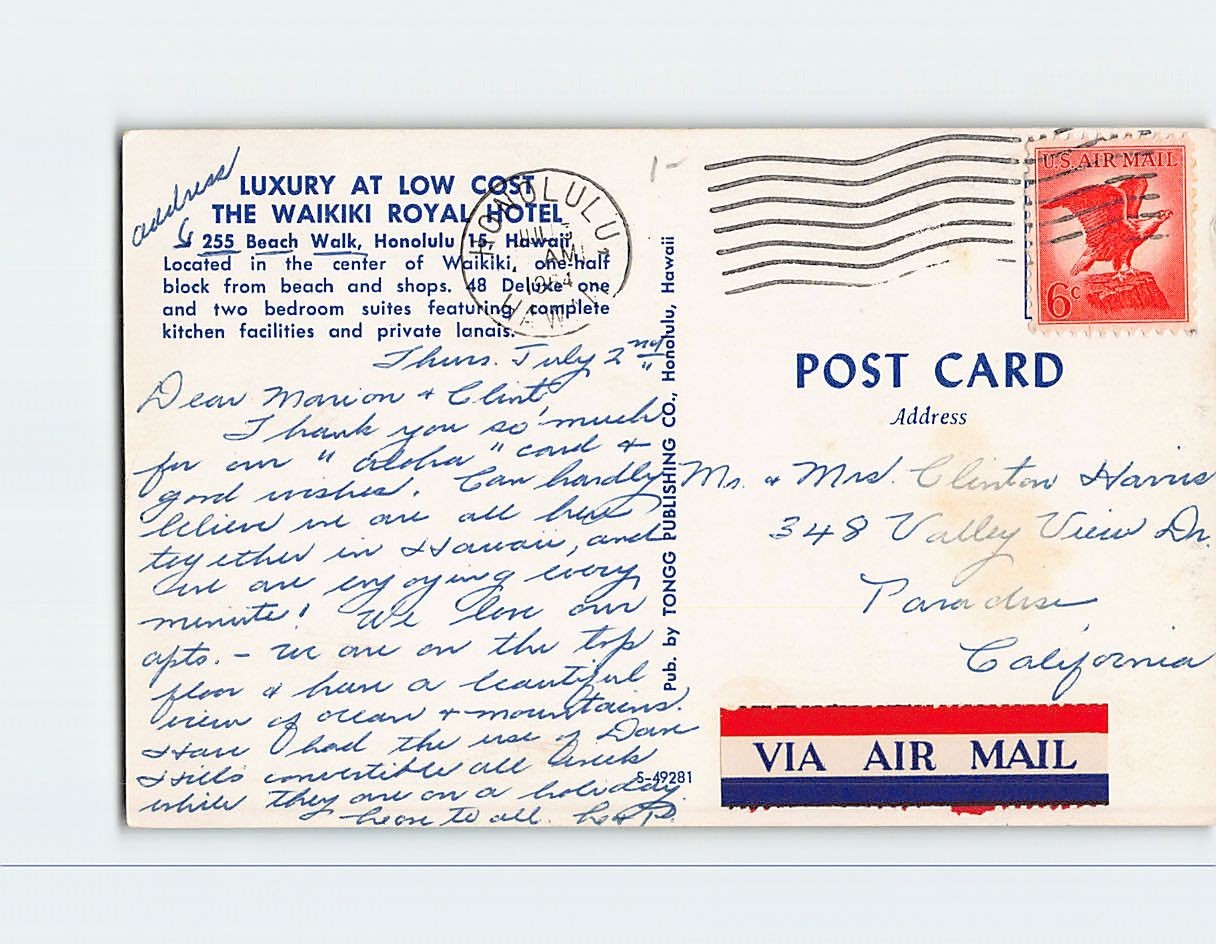 address
LUXURY AT LOW COST
THE WAIKIKI ROYAL HOTEL
255 Beach Walk, Honolulu 15, Hawaii,
Located in the center of Waikiki, one-half
block from beach and shops. 48 Deluxe one
and two bedroom suites featuring complete
kitchen facilities and private lanais.
Thurs. July 2nd
Dear Marion + Clint,
Thank you so much
for our "aloha" card +
good wishes. Can hardly
believe we are all here
together in Hawaii, and
we are enjoying every
minute! We love our
apts. – we are on the top
floor & have a beautiful
view of ocean + mountains.
Have had the use of Dave
Hills convertible all week
while they are on a holiday.
to all.
S-49281
Pub. by TONGG PUBLISHING CO., Honolulu, Hawaii
HONOLULU
JUL
AM
1964
HAWAII
1-
U.S. AIR MAIL
6c
POST CARD
Address
Mr. & Mrs. Clinton Harris
348 Valley View Dr.
Paradise
California
VIA AIR MAIL